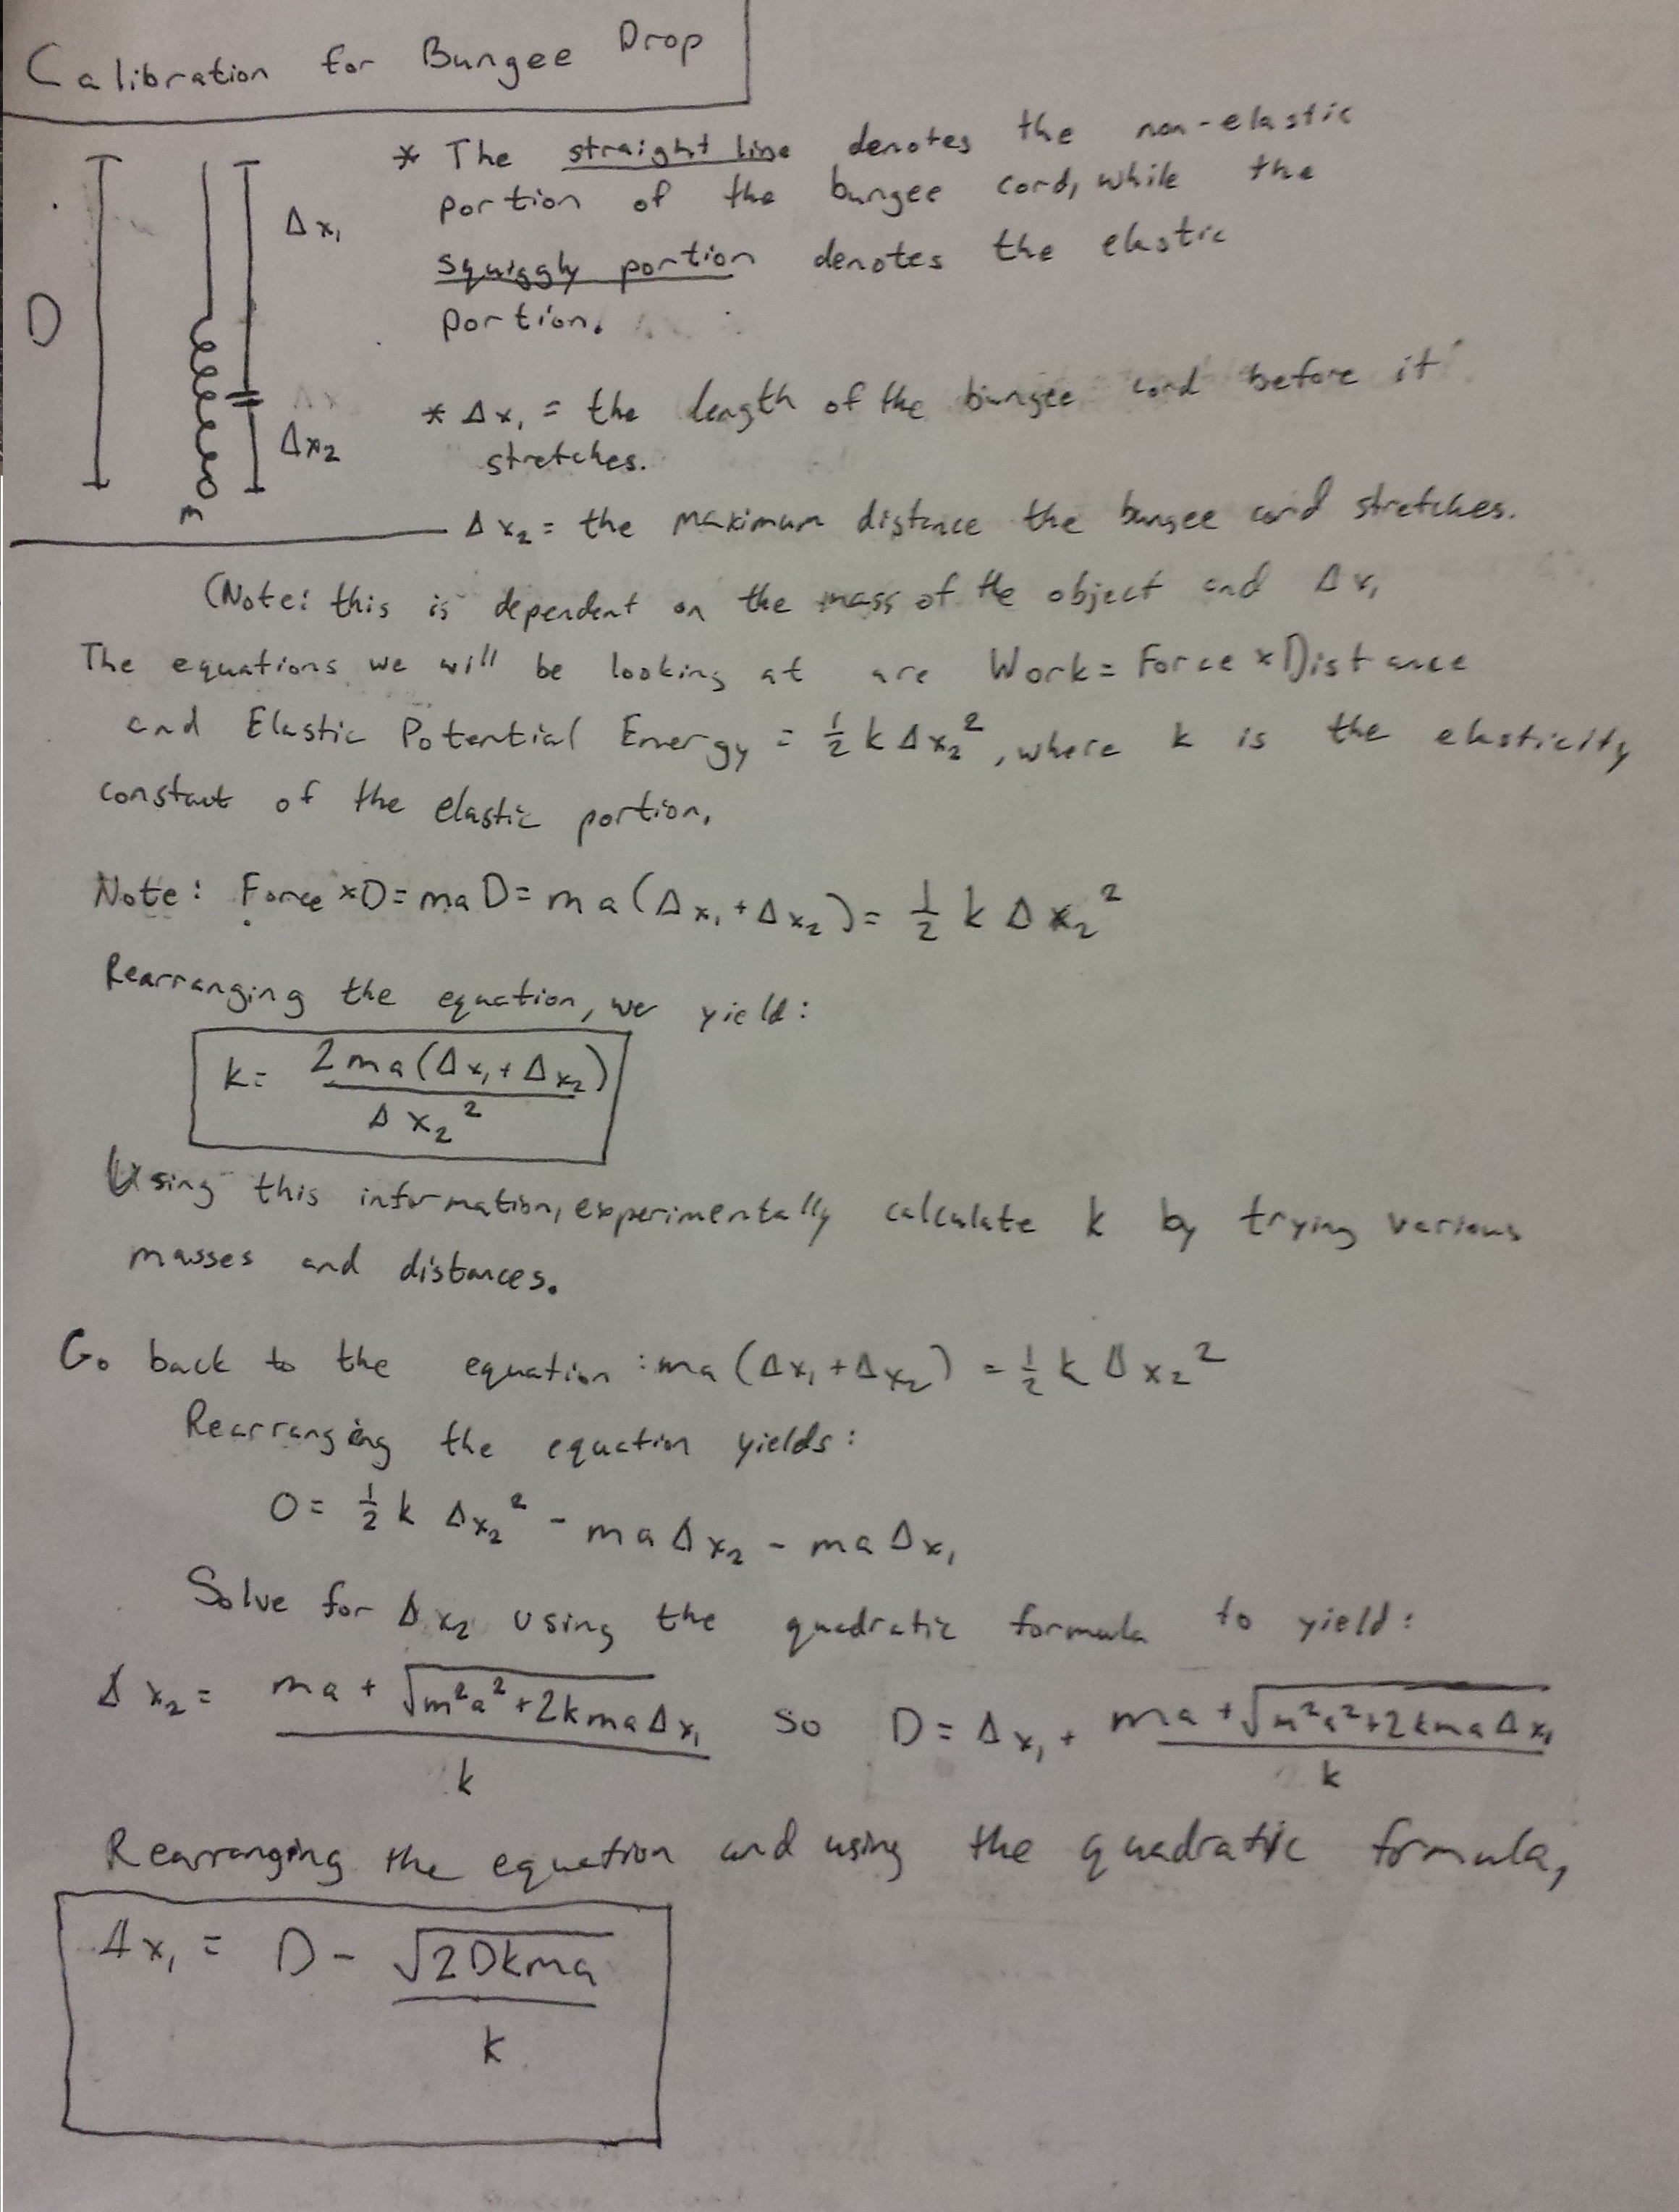 Calibration for Bungee Drop
D
Δx₁
Δx₂
m
* The straight line denotes the non-elastic
portion of the bungee cord, while the
squiggly portion denotes the elastic
portion.
* Δx₁ = the length of the bungee cord before it
stretches.
Δx₂ = the maximum distance the bungee cord stretches.
(Note: this is dependent on the mass of the object and Δx₁
The equations we will be looking at are Work = Force × Distance
and Elastic Potential Energy = ½ k Δx₂², where k is the elasticity
constant of the elastic portion.
Note: Force × D = ma D = ma (Δx₁ + Δx₂) = ½ k Δx₂²
Rearranging the equation, we yield:
k = 2ma(Δx₁ + Δx₂)
Δx₂²
Using this information, experimentally calculate k by trying various
masses and distances.
Go back to the equation : ma (Δx₁ + Δx₂) = ½ k Δx₂²
Rearranging the equation yields:
0 = ½ k Δx₂² - ma Δx₂ - ma Δx₁
Solve for Δx₂ using the quadratic formula to yield:
Δx₂ = ma + √m²a² + 2kmaΔx₁ so D = Δx₁ + ma + √m²a² + 2kmaΔx₁
k k
Rearranging the equation and using the quadratic formula,
Δx₁ = D - √2Dkma
k